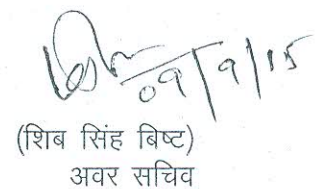 09/9/15
(शिब सिंह बिष्ट)
अवर सचिव